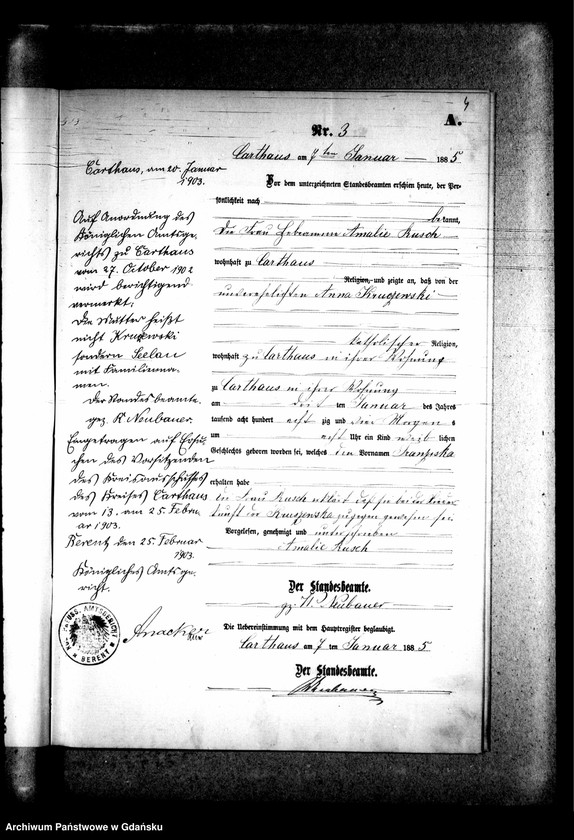 4
A.
Nr. 3
Carthaus am 7ten Januar 1885
Vor dem unterzeichneten Standesbeamten erschien heute, der Per-
sönlichkeit nach
bekannt,
die Frau Hebeamme Amalie Rusch
wohnhaft zu Carthaus
Religion, und zeigte an, daß von der
unverehelichten Anna Kruczewski
katholischer Religion,
wohnhaft zu Carthaus in ihrer Wohnung
zu Carthaus in ihrer Wohnung
am ten Januar des Jahres
tausend acht hundert achtzig und Morgens
um acht Uhr ein Kind lichen
Geschlechts geboren worden sei, welches den Vornamen Franziska
erhalten habe
die Frau Rusch erklärt daß sie bei der Nieder-
kunft der zugegen gewesen sei
Vorgelesen, genehmigt und unterschrieben
Amalie Rusch
Der Standesbeamte.
gz. Neubauer
Die Uebereinstimmung mit dem Hauptregister beglaubigt.
Carthaus am 7 ten Januar 1885
Der Standesbeamte.
Neubauer
Carthaus, am 20. Januar
1903.
Auf Anordnung des
Königlichen Amtsge-
richts zu Carthaus
vom 27. October 1902
wird berichtigend
vermerkt:
Die Mutter heißt
nicht Kruzewski
sondern Seelau
mit Familienna-
men.
Der Standesbeamte.
gez. R Neubauer.
Eingetragen auf Ersu-
chen des Vorsitzenden
des Kreisausschusses
des Kreises Carthaus
vom 13. am 25. Febru
ar 1903.
Berent den 25. Februar
1903.
Königliches Amtsge-
richt.
PREUSS. AMTSGERICHT
BERENT
Archiwum Państwowe w Gdańsku